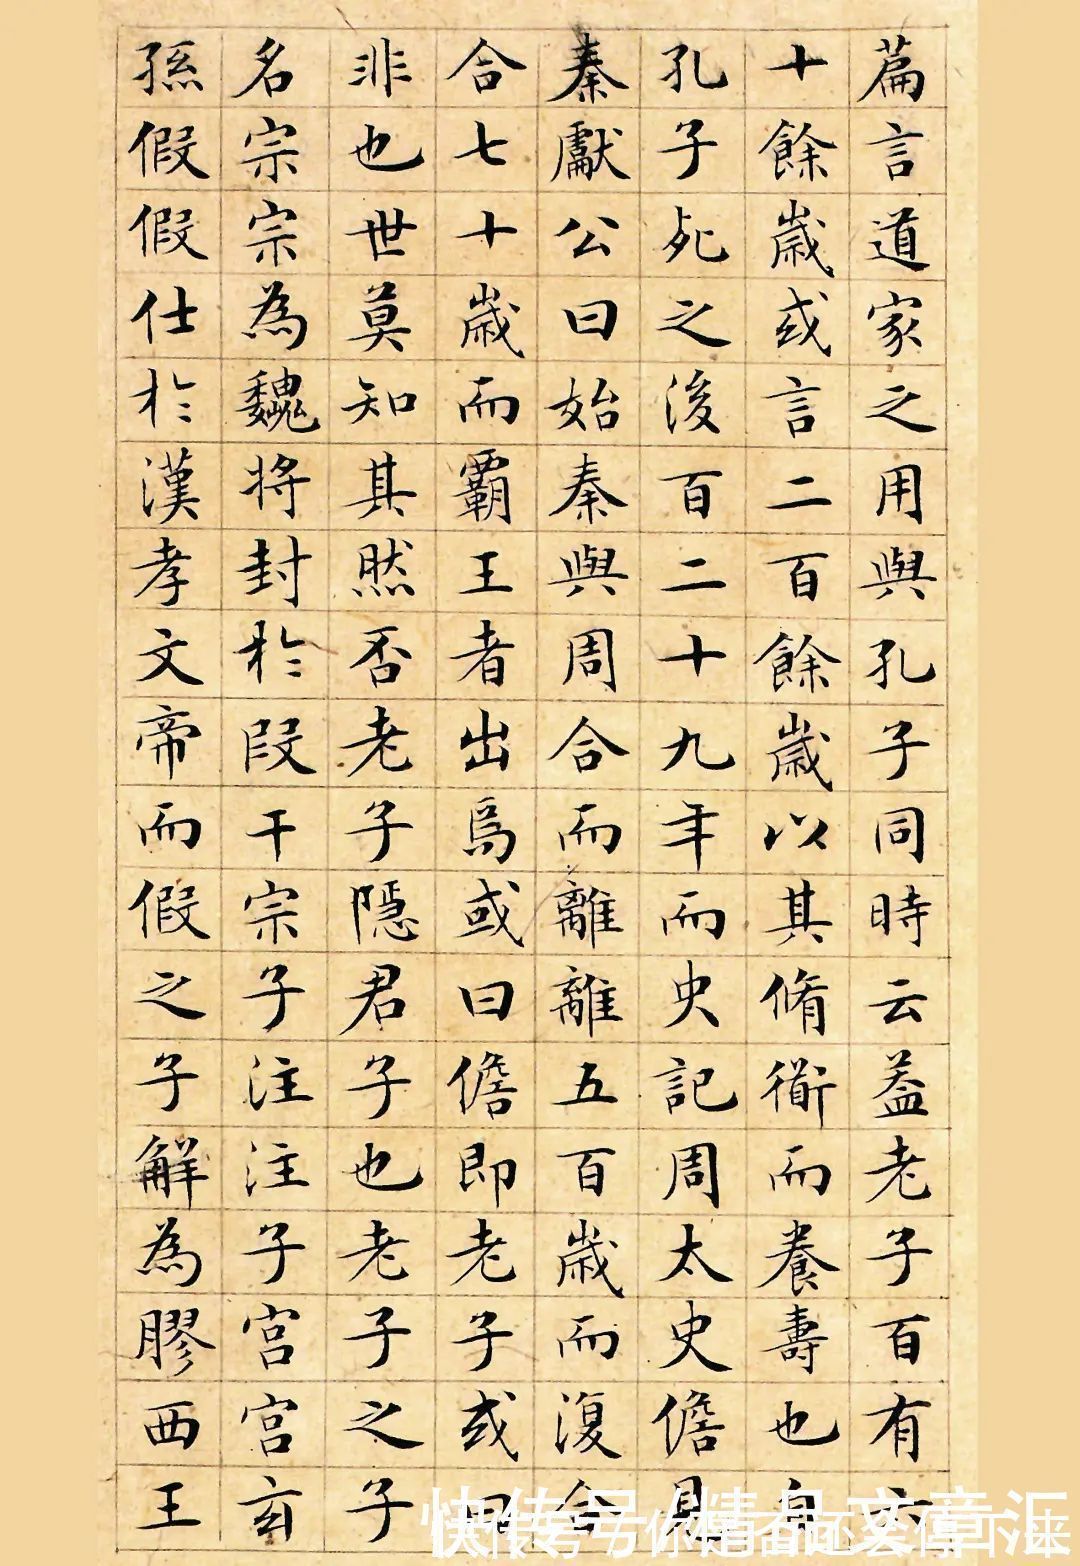 篇言道家之用與孔子同時云葢老子百有六
十餘歲或言二百餘歲以其脩術而養壽也自
孔子死之後百二十九年而史記周太史儋見
秦獻公曰始秦與周合而離離五百歲而復合
合七十歲而霸王者出焉或曰儋即老子或曰
非也世莫知其然否老子隱君子也老子之子
名宗宗為魏將封於段干宗子注注子宮宮玄
孫假假仕於漢孝文帝而假之子解為膠西王
快传号/精品文章汇